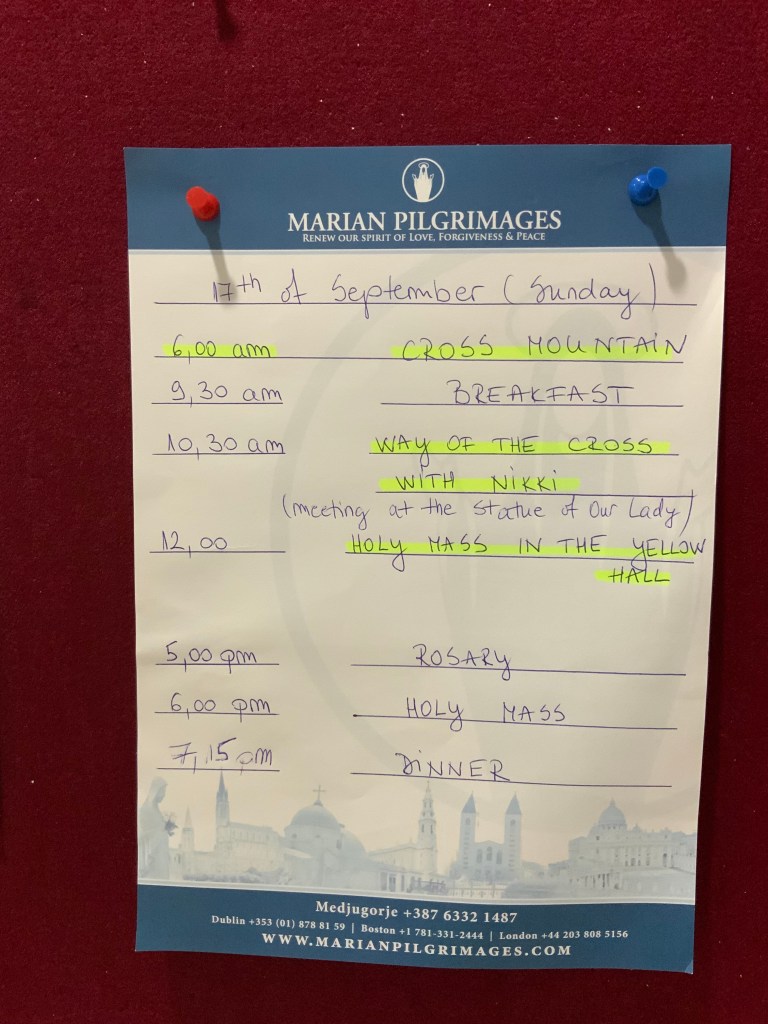 MARIAN PILGRIMAGES
RENEW OUR SPIRIT OF LOVE, FORGIVENESS & PEACE
17th of September (Sunday)
6,00 am CROSS MOUNTAIN
9,30 am BREAKFAST
10,30 am WAY OF THE CROSS
WITH NIKKI
(meeting at the statue of Our Lady)
12,00 HOLY MASS IN THE YELLOW
HALL
5,00 pm ROSARY
6,00 pm HOLY MASS
7,15 pm DINNER
Medjugorje +387 6332 1487
Dublin +353 (01) 878 81 59 | Boston +1 781-331-2444 | London +44 203 808 5156
WWW.MARIANPILGRIMAGES.COM